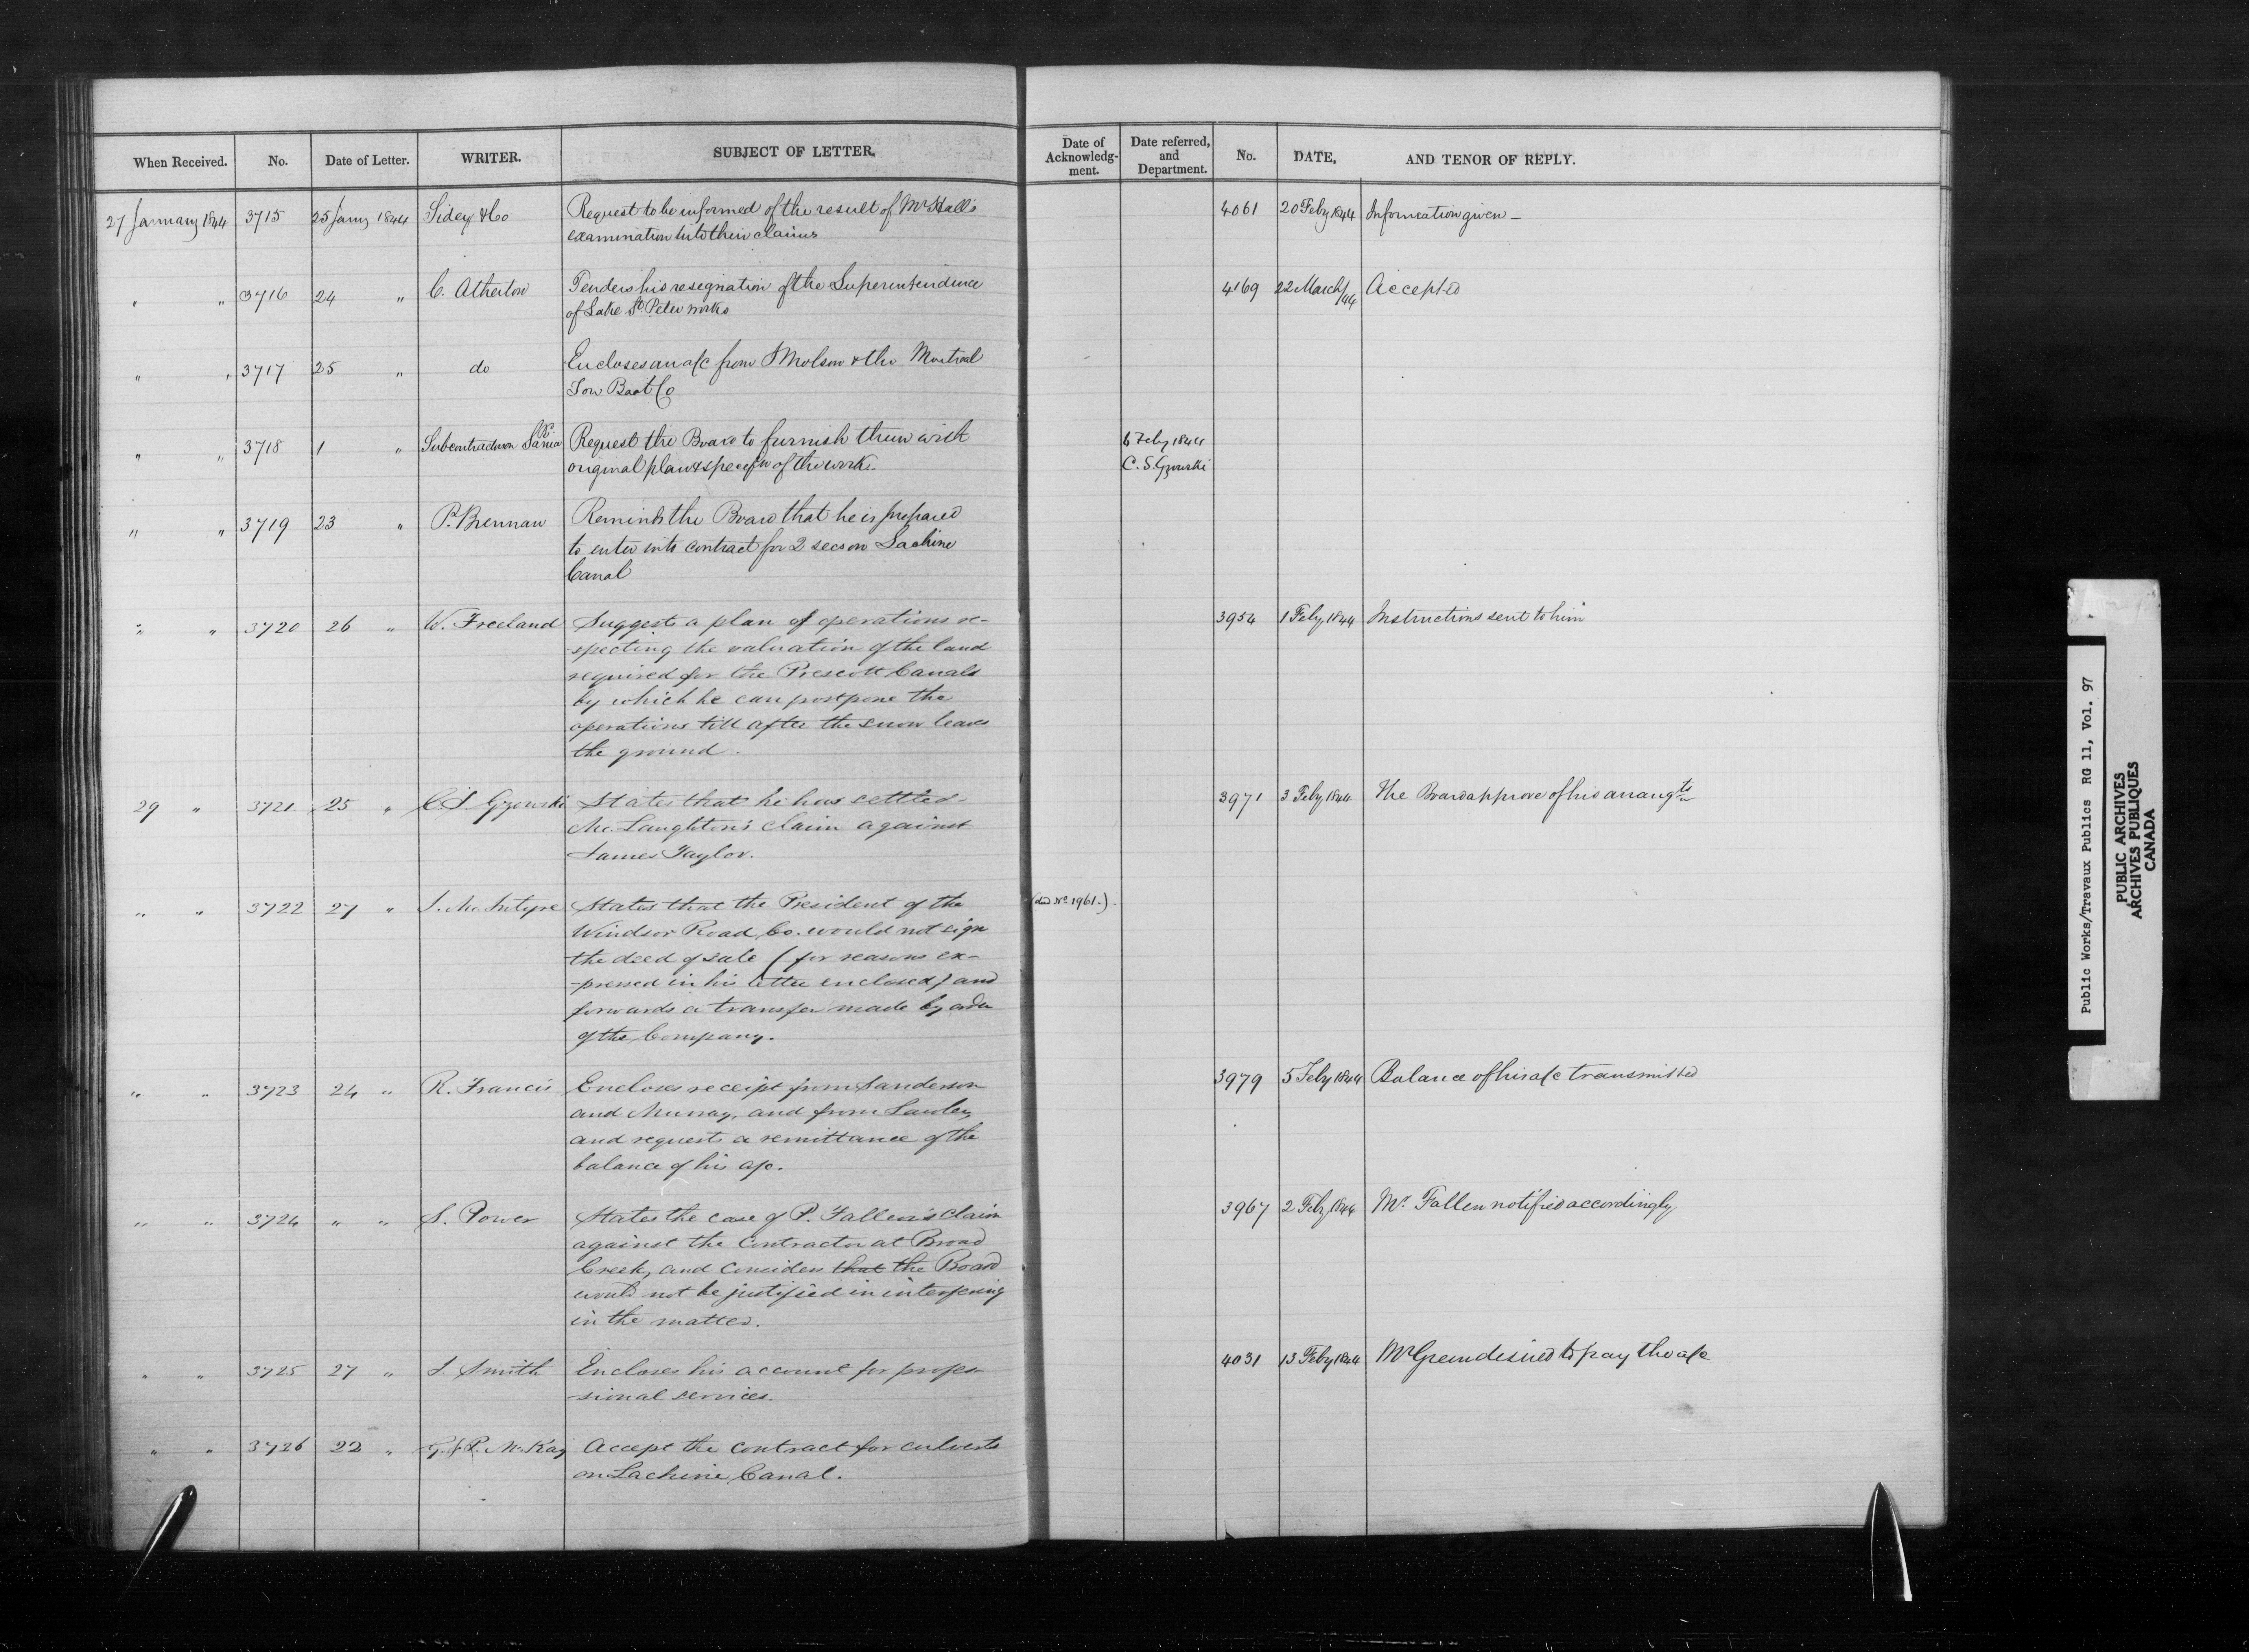 When Received. No. Date of Letter. WRITER. SUBJECT OF LETTER. Date of Acknowledg-ment. Date referred, and Department. No. DATE, AND TENOR OF REPLY.
27 January 1844 3715 25 Jany 1844 Sidey & Co Request to be informed of the result of Mr Hall's 4061 20 Feby 1844 Information given –
examination into their claims
" " 3716 24 " C. Atherton Tenders his resignation of the Superintendence 4169 22 March/44 Accepted
of Lake St Peter works
" " 3717 25 " do Encloses an a/c from J Molson & the Montreal
Tow Boat Co
" " 3718 1 " Subcontractors Request the Board to furnish them with 6 Feby 1844
original plan & specifn of the works. C. S. Gzowski
" " 3719 23 " P. Brennan Reminds the Board that he is prepared
to enter into contract for 2 secs on Lachine
Canal
" " 3720 26 " W. Freeland Suggests a plan of operations re- 3954 1 Feby 1844 Instructions sent to him
-specting the valuation of the land
required for the Prescott Canals
by which he can postpone the
operations till after the snow leaves
the ground.
29 " 3721. 25 " C. S. Gzowski States that he has settled 3971 3 Feby 1844 The Board approve of his arrangts
Mc. Laughton's claim against
James Taylor.
" " 3722 27 " J. Mc. Intyre States that the President of the (Deed No 1961.)
Windsor Road Co. would not sign
the deed of sale (for reasons ex-
-pressed in his letter enclosed) and
forwards a transfer made by order
of the Company.
" " 3723 24 " R. Francis Encloses receipt from Sanderson 3979 5 Feby 1844 Balance of his a/c transmitted
and Murray, and from Lawley
and requests a remittance of the
balance of his a/c.
" " 3724 " " S. Power States the case of P. Fallen's claim 3967 2 Feby 1844 Mr. Fallen notified accordingly
against the Contractor at Broad
Creek, and considers that the Board
would not be justified in interfering
in the matter.
" " 3725 27 " J. Smith Encloses his account for profes- 4031 13 Feby 1844 Mr Green desired to pay the a/c
-sional services.
" " 3726 22 " G. & P. McKay Accept the contract for culverts
on Lachine Canal.
Public Works/Travaux Publics RG 11, Vol. 97
PUBLIC ARCHIVES
ARCHIVES PUBLIQUES
CANADA